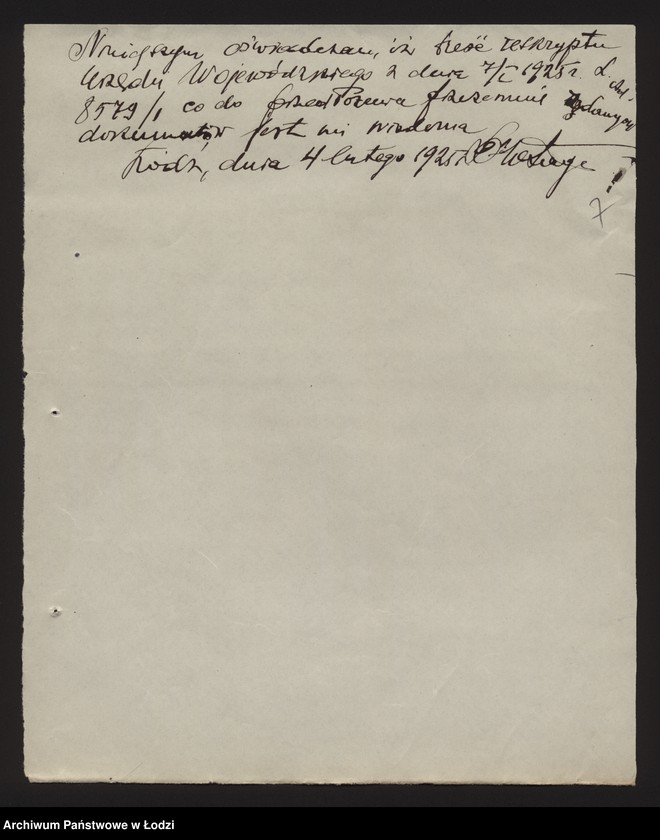 Niniejszym oświadczam, iż treść reskryptu
Urzędu Wojewódzkiego z dnia 7/I 1925 r. L.
8579/1 co do przedłożenia przezemnie żądanych
dokumentów jest mi wiadoma
Łódź, dnia 4 lutego 1925 r.
Archiwum Państwowe w Łodzi